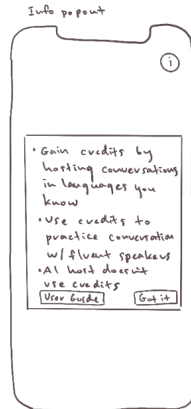 Info popout
i
• Gain credits by
hosting conversations
in languages you
know
• Use credits to
practice conversation
w/ fluent speakers
• AI host doesn't
use credits
User Guide
Got it